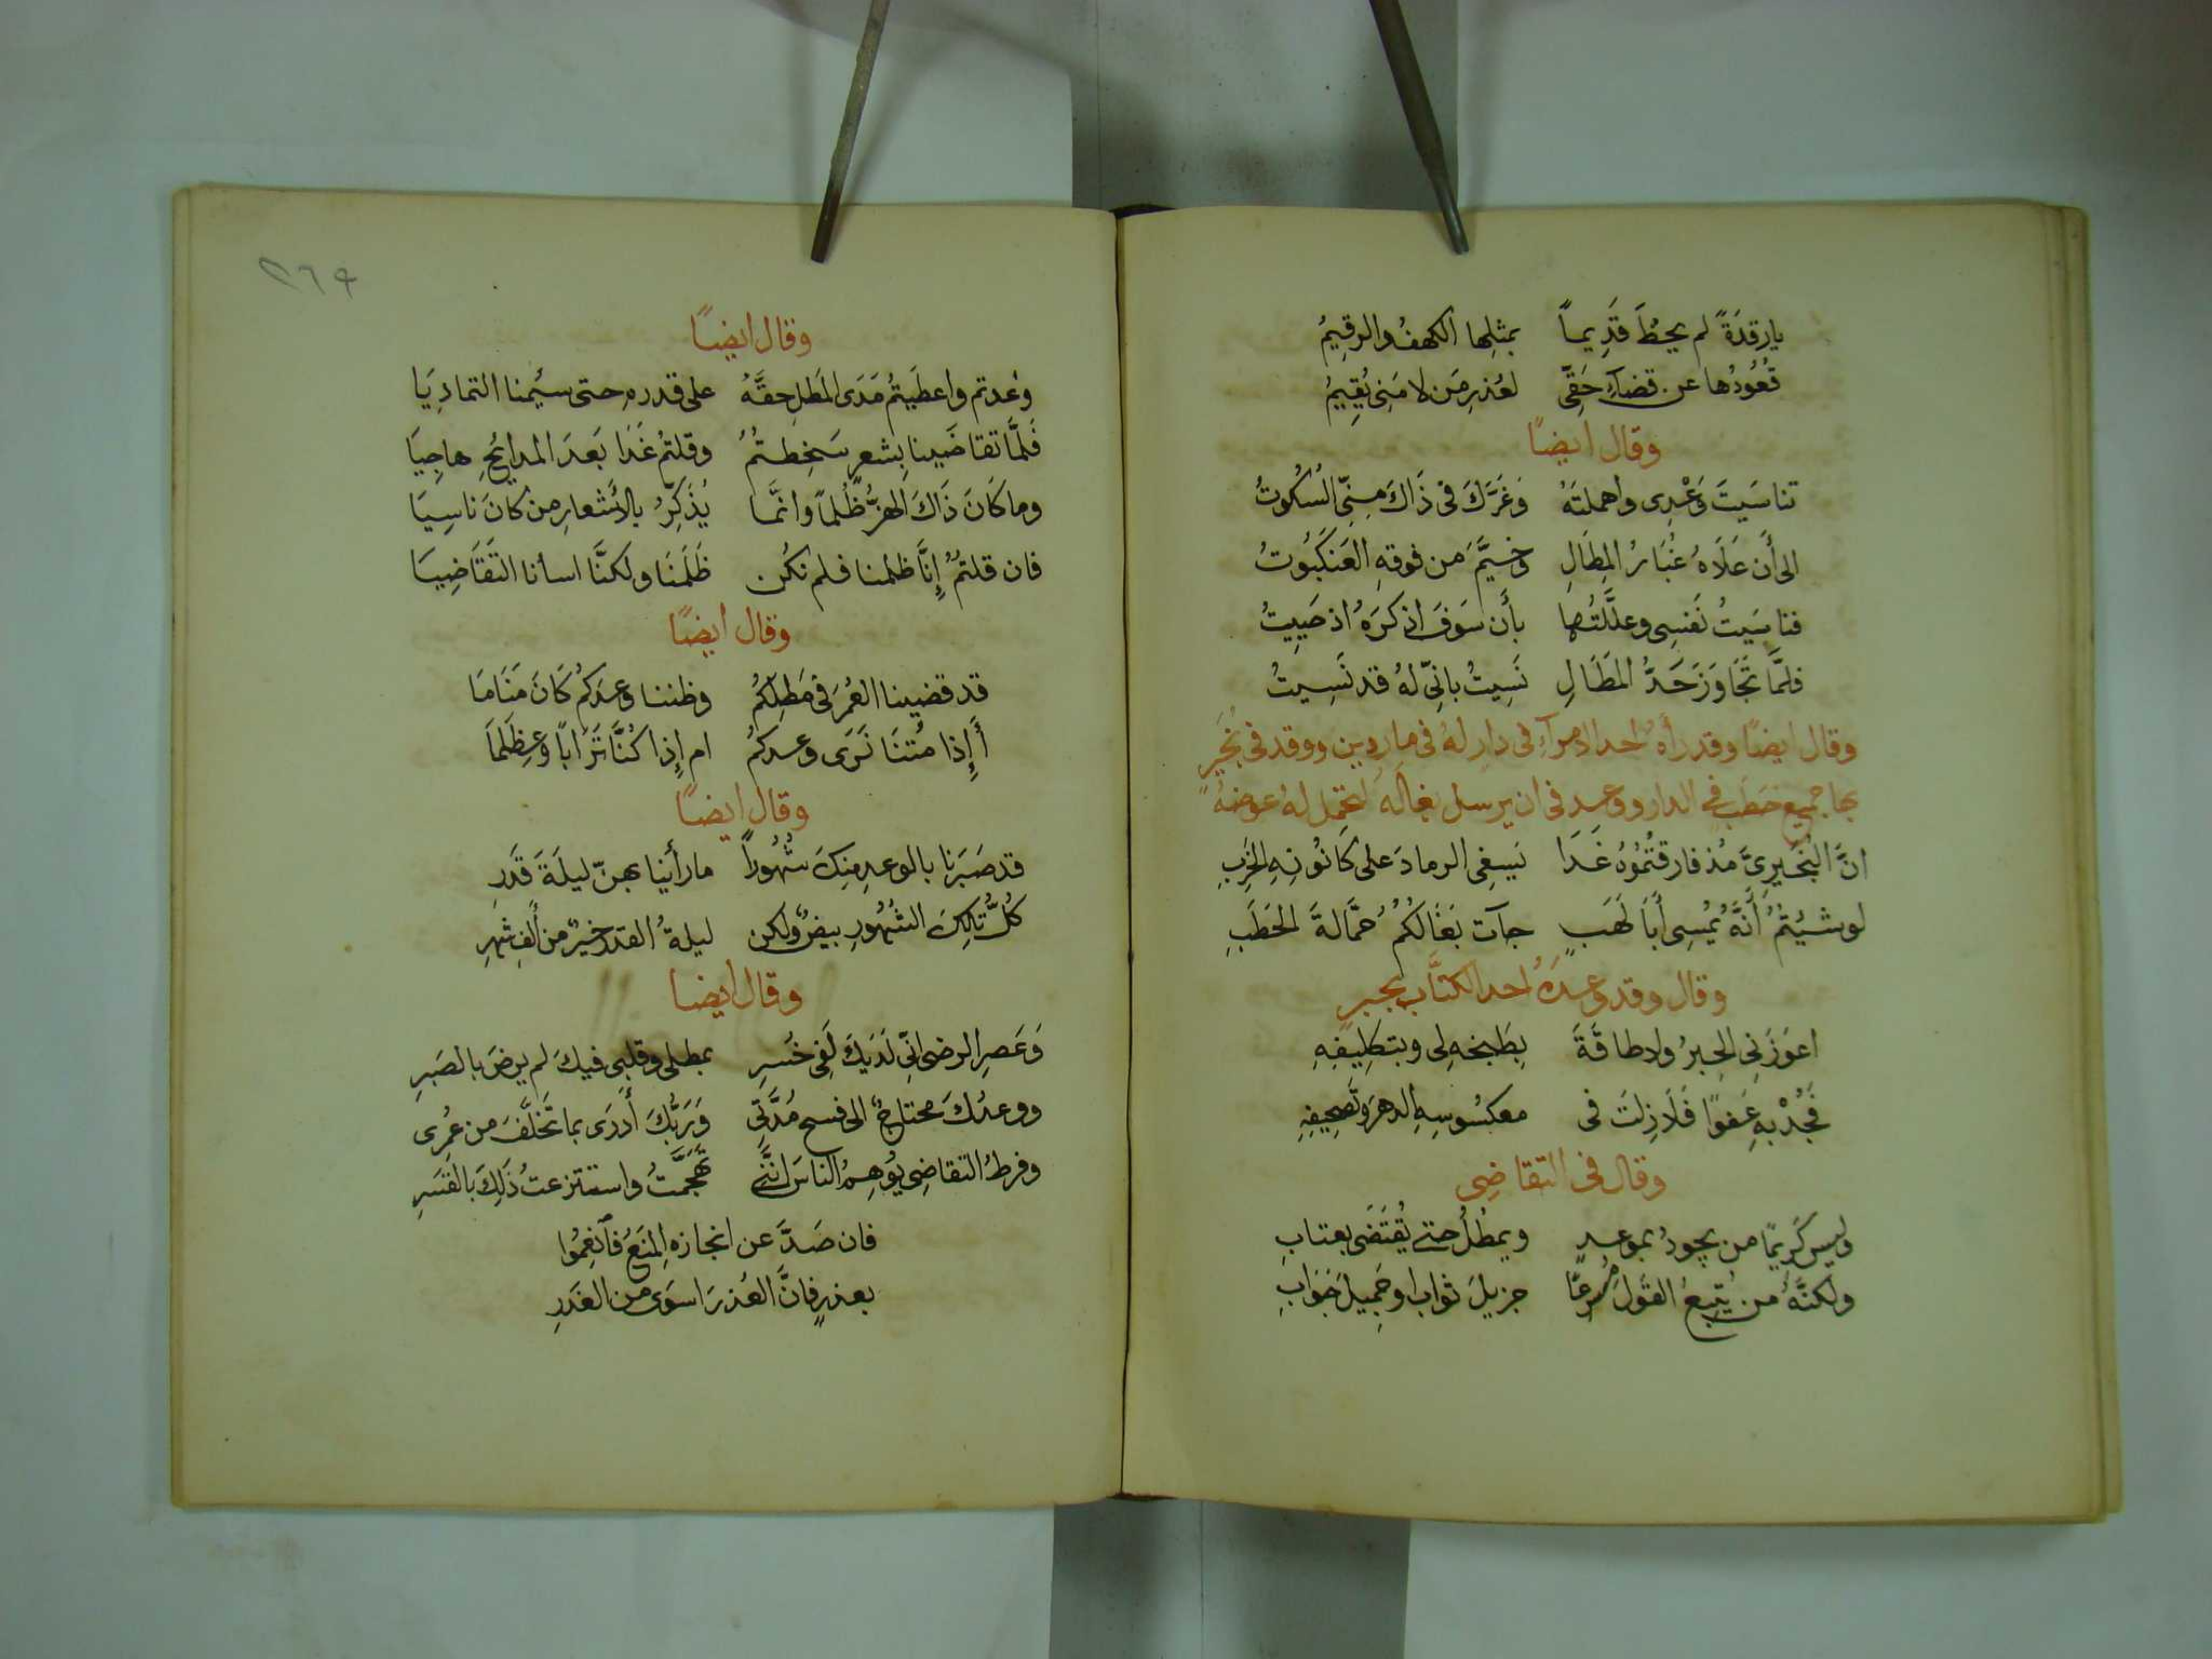 يا رقدَةً لم يحظَ قَدِيماً بمثلِها الكهفُ والرقِيمُ
قُعُودُها عن قضاءِ حَقّى لعُذرِ مَن لا مَنِى يُقِيمُ
وقال ايضًا
تناسَيتَ وَعْدِى واهملتَهُ وَغَرَّكَ فى ذَاكَ مِنِّى السُكُوتُ
الى أَن عَلَاهُ غُبَارُ المِطَالِ وخيَّمَ من فوقهِ العَنكَبُوتُ
فناسَيتُ نَفسِى وعلَّلتُها بأَن سَوفَ اذكرَهُ اذ حَيِيتُ
فلمَّا تَجَاوَزَ حَدَّ المَطَالِ نَسِيتُ بانِّى لهُ قد نَسِيتُ
وقال ايضًا وقد رأهُ احد الامرآءِ فى دار له فى ماردين ووقد فى بُخَيرِ
بها جميع حَطَب فى الدار ووعد فى ان يرسل بغاله لتحمل له عوضهُ
انَّ البُخَيرِىَّ مُذ فارقتُمُوهُ غَدَا يَسِفى الرمادَ على كَانُونِهِ الخَرِبِ
لو شيُتُمُ أَنَّهُ يُمسِى أَبَا لَهَبٍ جآت بغَالُكُمُ حمَّالةَ الحَطَبِ
وقال وقد وعدَهُ احد الكتَّاب بحبر
اعوَزَنِى الحِبرُ ولا طاقَةَ بِطَبخهِ لى وبتكلِيفِهِ
فَجُدْ بهِ عَفوًا فَلَا زِلتَ فى معكُسُوسِهِ الدهرَ وتَصحِيفِهِ
وقال فى التقاضِى
وليس كَريمًا من يجودُ بموعدٍ ويمطُلُ حتى يُقتَضَى بعتابِ
ولكنَّهُ من يُتبِعُ القَولَ مُسرِعًا جزيلَ ثواب او جَمِيلَ جَوَابِ
٢٦٩
وقال ايضًا
وُعدتم واعطَيتُم مَدَى المَطلِ حقَّهُ على قدره حتى سئِمنا التمادِيَا
فَلمَّا تقاضَينا بِشعرٍ سَخِطتُمُ وقلتُم غَدَا بَعدَ المدايُحِ هاجِيَا
وما كَانَ ذَاكَ الهزُّ ظُلماً وانَّما يُذَكِّرُ بالأَشعارِ من كانَ ناسِيَا
فان قلتُمُ إِنَّا ظلمنا فلم نكُن ظَلَمنَا ولكنَّا اسأنا التقَاضِيَا
وقال أيضًا
قد قضينا العُمرَ فى مَطلِكُم وظننا وعدَكُم كَانَ مَنَامَا
أَإِذا مُتنَا نَرَى وعدكُم ام إِذا كُنَّا تَرَاباً وعِظَلمَا
وقال ايضًا
قد صَبَرنا بالوعدِ مِنكَ شُهُوراً ما رأَينا بهنّ ليلَةَ قَدَرِ
كُلُّ تِلكَ الشُهُورِ بيضٌ ولكن ليلةُ القدر خيرٌ من أَلفِ شهرِ
وقال أيضا
وَعَصرِ الرضى انّى لَدَيكَ لَفِى خُسرِ بمطلى وقلبى فيكَ لم يرضَ بالصَبرِ
ووعدُكَ محتاجٌ الى فسح مُدَّتِى وَرَبُّكَ أَدرَى بما تَخَلَّفَ من عُمرِى
وفرطُ التقاضِى يُوهِمُ الناسَ انَّنى تَهجَّمتُ واستنزعتُ ذَلِكَ بالقَسَرِ
فان صَدَّ عن انجازه المَنعُ فَانعِمُوا
بعذرٍ فانَّ العُذرَ اسوَى من الغَدرِ